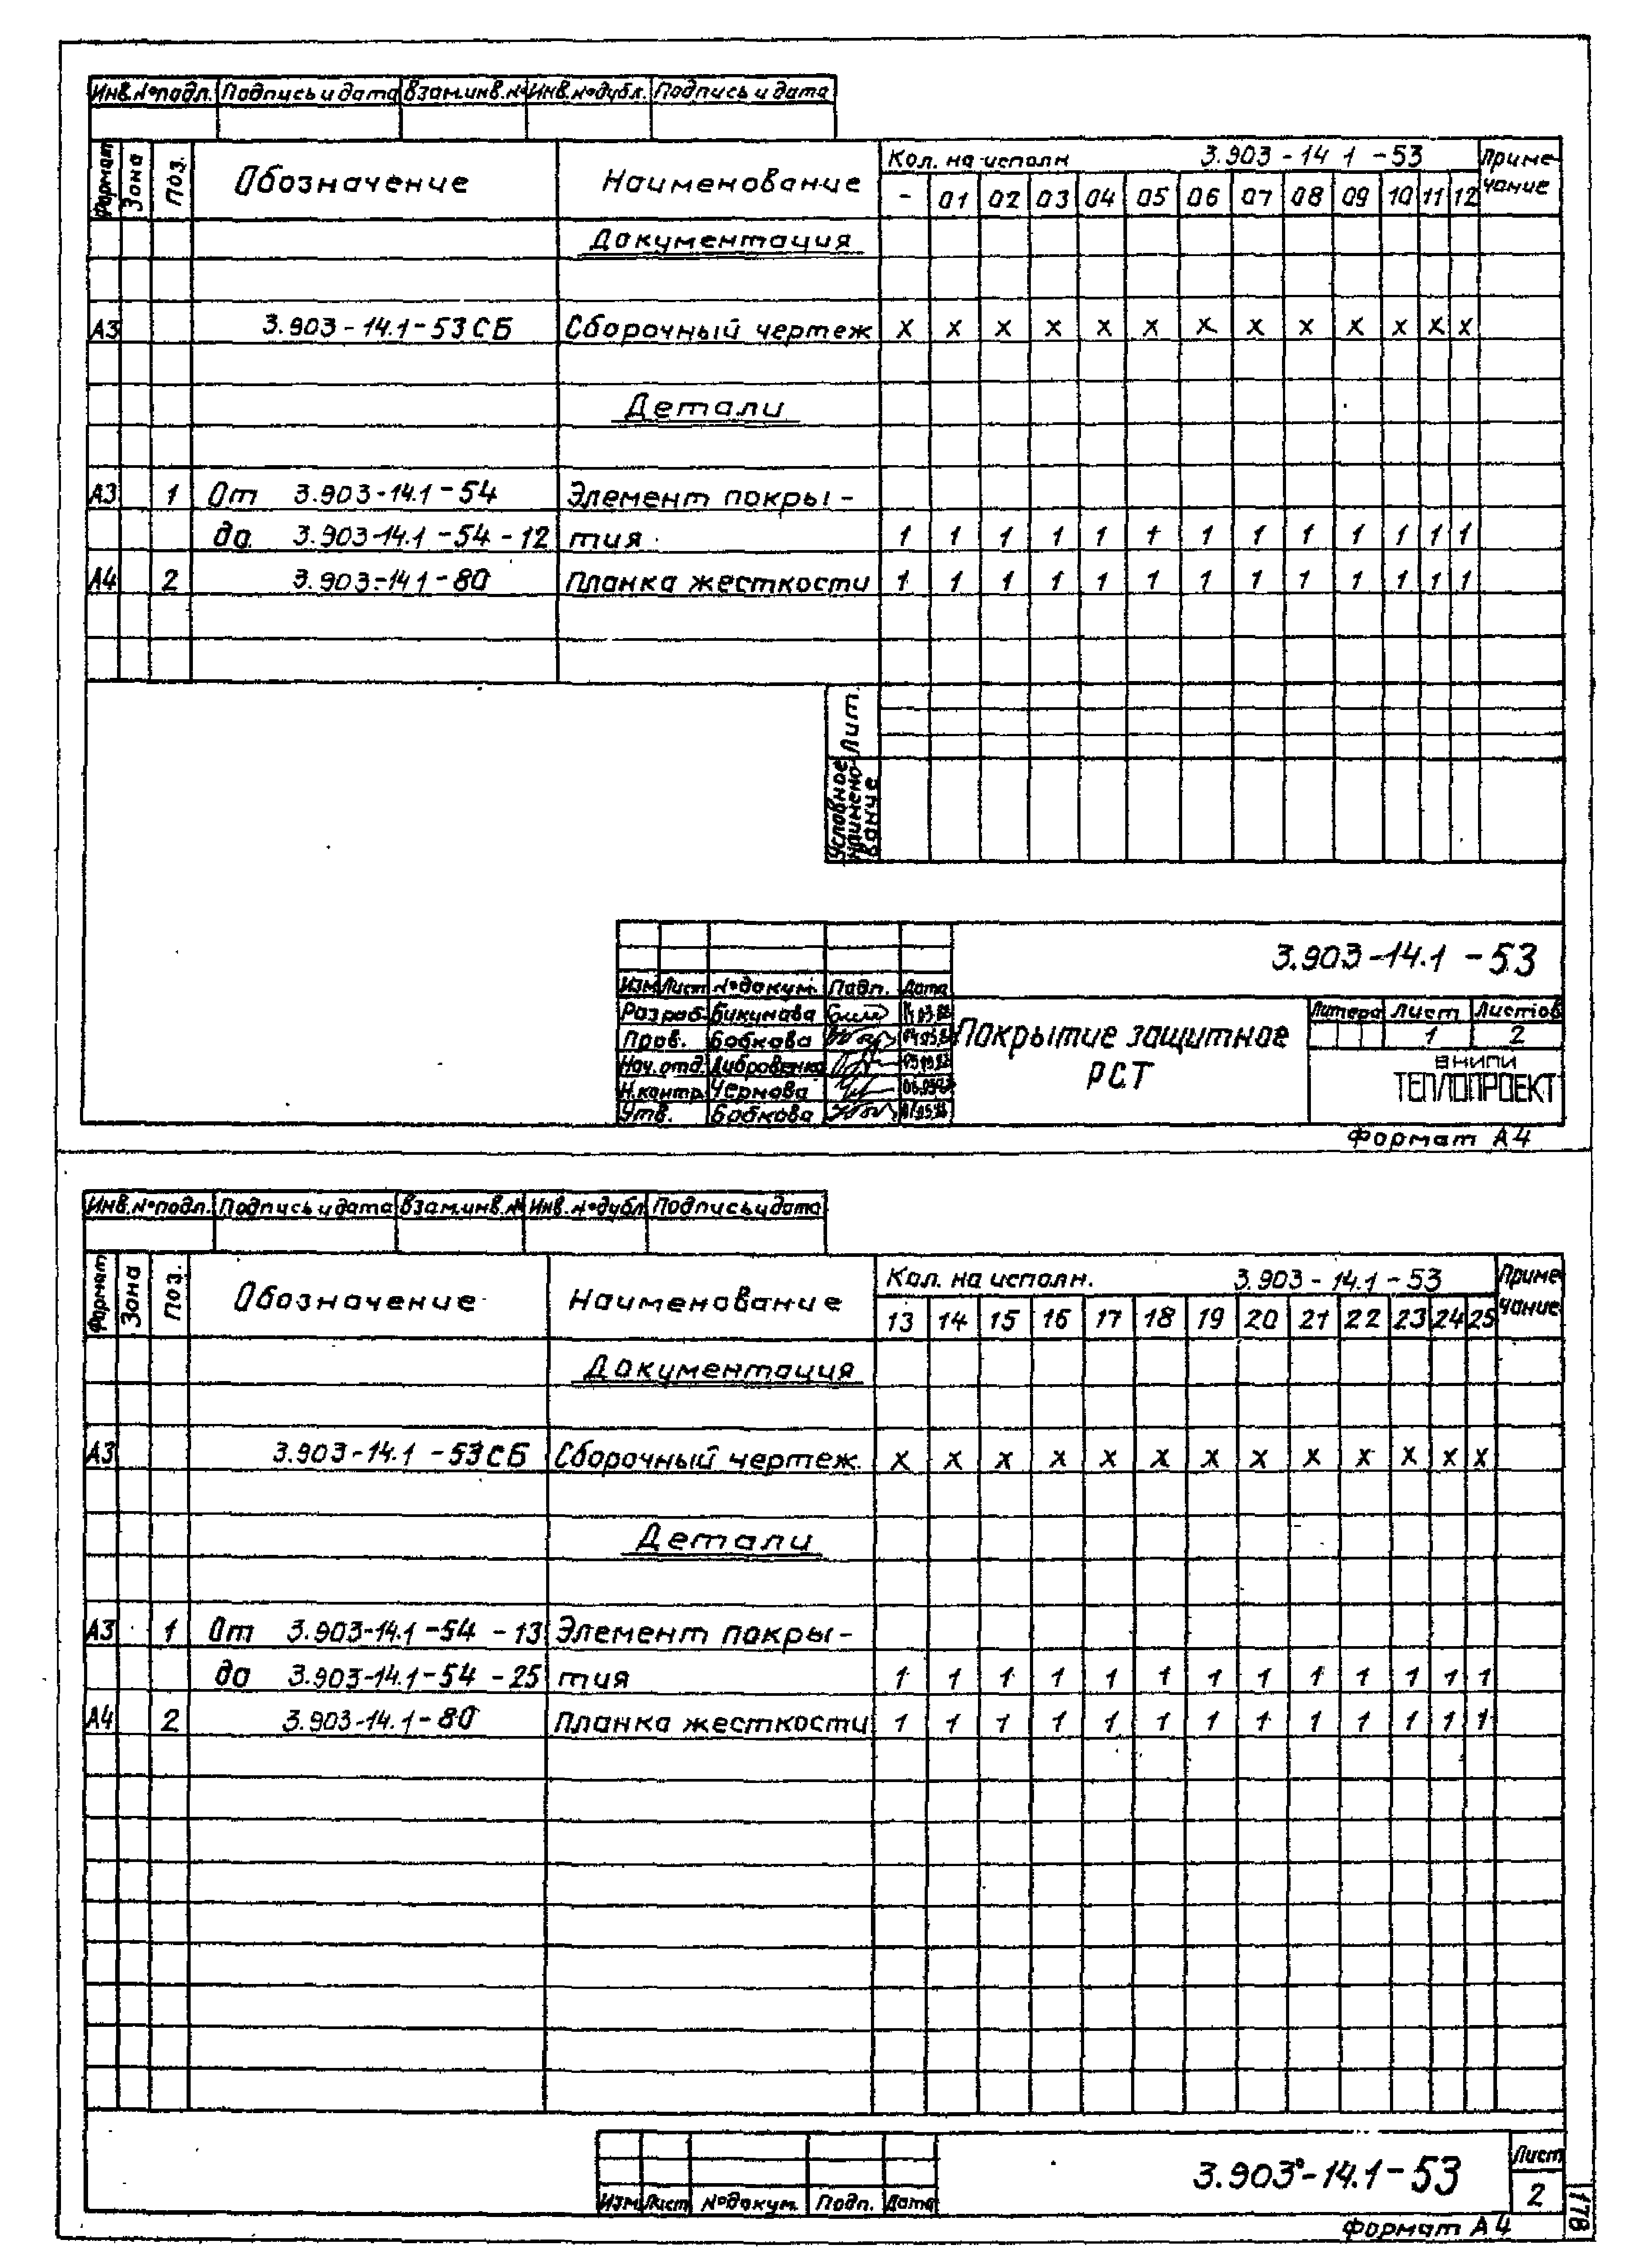 Инв.№подл. Подпись и дата Взам.инв.№ Инв.№дубл. Подпись и дата
Формат Зона Поз. Обозначение Наименование Кол. на исполн 3.903-14 1 -53 Приме-чание
- 01 02 03 04 05 06 07 08 09 10 11 12
Документация
А3 3.903-14.1-53СБ Сборочный чертеж х х х х х х х х х х х х х
Детали
А3 1 От 3.903-14.1-54 Элемент покры-
до 3.903-14.1-54-12 тия 1 1 1 1 1 1 1 1 1 1 1 1 1
А4 2 3.903-14.1-80 Планка жесткости 1 1 1 1 1 1 1 1 1 1 1 1 1
Лит.
Условное наимено-вание
3.903-14.1-53
Изм Лист №докум. Подп. Дата
Разраб. Букунова
Пров. Бобкова
Нач.отд.
Н.контр. Чернова
Утв. Бобкова
Покрытие защитное
РСТ
Литера Лист Листов
1 2
ВНИПИ
ТЕПЛОПРОЕКТ
Формат А4
Инв.№подл. Подпись и дата Взам.инв.№ Инв.№дубл Подпись и дата
Формат Зона Поз. Обозначение Наименование Кол. на исполн. 3.903-14.1-53 Приме-чание
13 14 15 16 17 18 19 20 21 22 23 24 25
Документация
А3 3.903-14.1-53СБ Сборочный чертеж х х х х х х х х х х х х х
Детали
А3 1 От 3.903-14.1-54-13 Элемент покры-
до 3.903-14.1-54-25 тия 1 1 1 1 1 1 1 1 1 1 1 1 1
А4 2 3.903-14.1-80 Планка жесткости 1 1 1 1 1 1 1 1 1 1 1 1 1
3.903-14.1-53
Лист
2
Изм Лист №докум. Подп. Дата
Формат А4
178